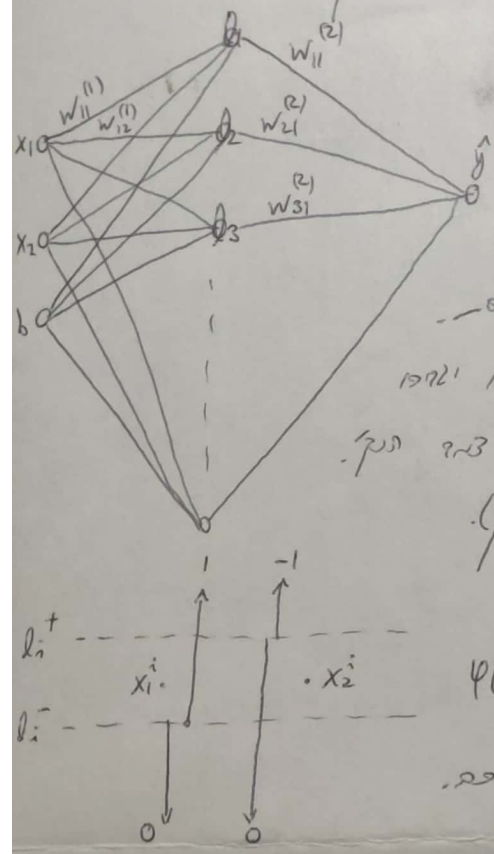 w₁₁⁽¹⁾
w₁₂⁽¹⁾
w₁₁⁽²⁾
w₂₁⁽²⁾
w₃₁⁽²⁾
x₁
x₂
b
1
2
3
ŷ
1
-1
lᵢ⁺
x₁ⁱ
x₂ⁱ
lᵢ⁻
0
0